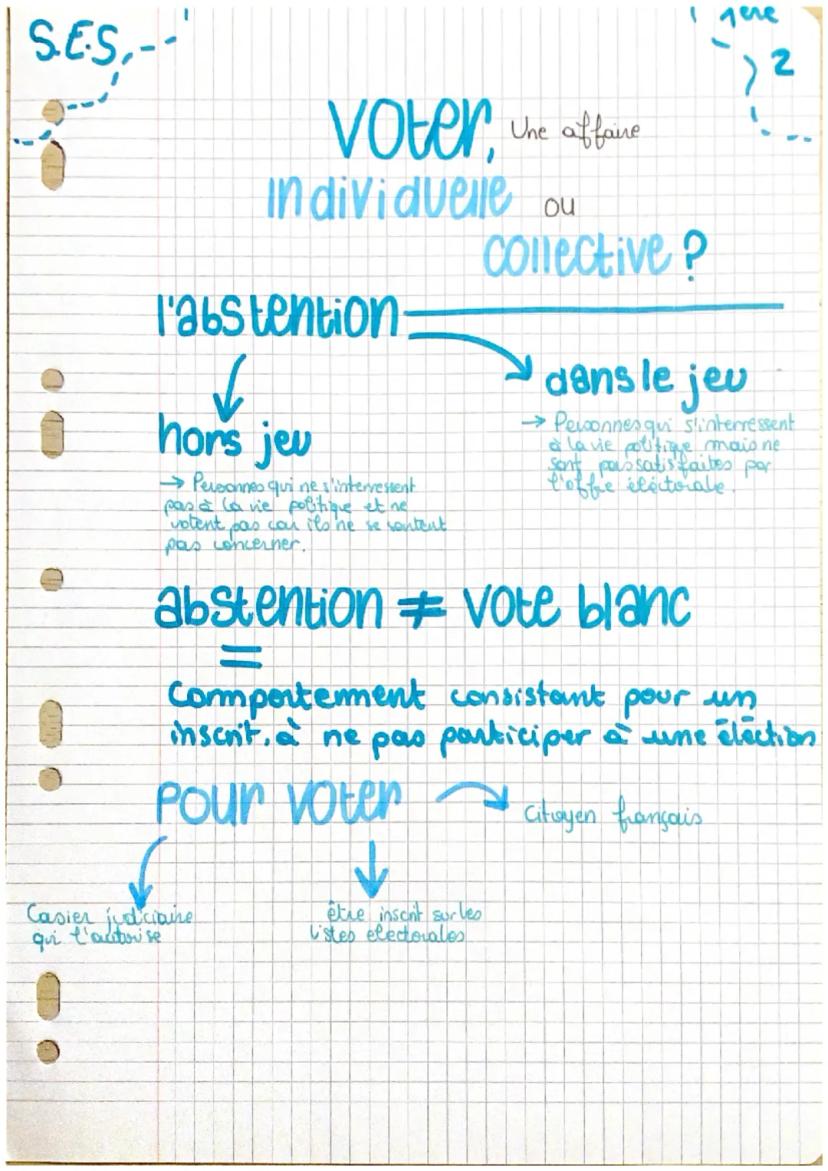 S.E.S
1ere
2
Voter, Une affaire
individuelle ou
collective ?
l'abstention
dans le jeu
→ Personnes qui s'interressent
à la vie politique mais ne
sont pas satisfaites par
l'offre éléctorale.
hors jeu
→ Personnes qui ne s'interressent
pas à la vie politique et ne
votent pas car ils ne se sentent
pas concerner.
abstention ≠ vote blanc
=
Comportement consistant pour un
inscrit, à ne pas participer à une élection
Pour voter
Citoyen français
Casier judiciaire
qui l'autorise
être inscrit sur les
listes electorales